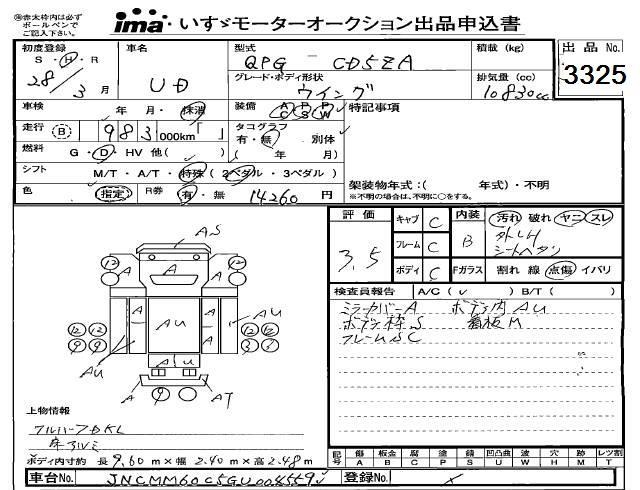 ㊟赤太枠内は必ず
ボールペンで
ご記入下さい。
ima いすゞモーターオークション出品申込書
初度登録 車名 型式 積載(kg) 出品No.
S・H・R UD QPG - CD5ZA 3325
28年 3月 グレード・ボディ形状 排気量(cc)
ウイング 10830cc
車検 年・月・抹消 装備 AC PS PW 特記事項
走行 B 983,000km「 」 タコグラフ
有・無 別体
燃料 G・D・HV 他( ) ( 年 月)
シフト M/T・A/T・特殊(2ペダル・3ペダル) 架装物年式:( 年式)・不明
色 指定 R券 有・無 14260円 ※不明の場合は、不明に○をする。
評価 キャブ C 内装 汚れ 破れ ヤニ スレ
3.5 フレーム C B 外しH
シートヘタリ
ボディ C Fガラス 割れ 線 点傷 イバリ
検査員報告 A/C( ✓ ) B/T( )
ミラーカバーA ボデー内AU
ボデー枠S 看板M
フレームSC
AS
12 A A 12
A
A A AU A A
12 12 12 12
9 9 3 3
AU A AU
A
9 AT
上物情報
フルハーフDKL
床アルミ
ボディ内寸約 長 9.60m×幅 2.40m×高 2.48m
記号 傷 板金 腐 塗 錆 凹凸曲 波 穴 跡 レツ割
A B C P S U W H M T
車台No. JNCMM60C5GU004559 登録No.